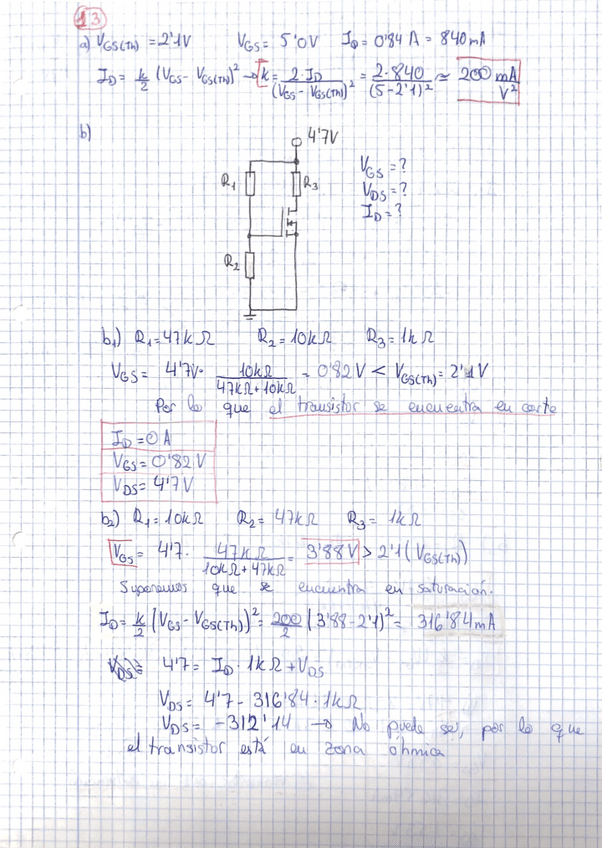 13
a) VGS(Th) = 2'1V VGS = 5'0V ID = 0'84 A = 840mA
ID = k/2 (VGS - VGS(Th))² → k = 2·ID/(VGS - VGS(Th))² = 2·840/(5-2'1)² ≈ 200 mA/V²
b)
4'7V
R1
R3
R2
VGS = ?
VDS = ?
ID = ?
b1) R1 = 47kΩ R2 = 10kΩ R3 = 1kΩ
VGS = 4'7V · 10kΩ/(47kΩ+10kΩ) = 0'82V < VGS(Th) = 2'1V
Por lo que el transistor se encuentra en corte
ID = 0 A
VGS = 0'82 V
VDS = 4'7 V
b2) R1 = 10kΩ R2 = 47kΩ R3 = 1kΩ
VGS = 4'7 · 47kΩ/(10kΩ+47kΩ) = 3'88V > 2'1 (VGS(Th))
Suponemos que se encuentra en saturación.
ID = k/2 (VGS - VGS(Th))² = 200/2 (3'88 - 2'1)² = 316'84mA
4'7 = ID · 1kΩ + VDS
VDS = 4'7 - 316'84 · 1kΩ
VDS = -312'14 → No puede ser, por lo que
el transistor está en zona óhmica